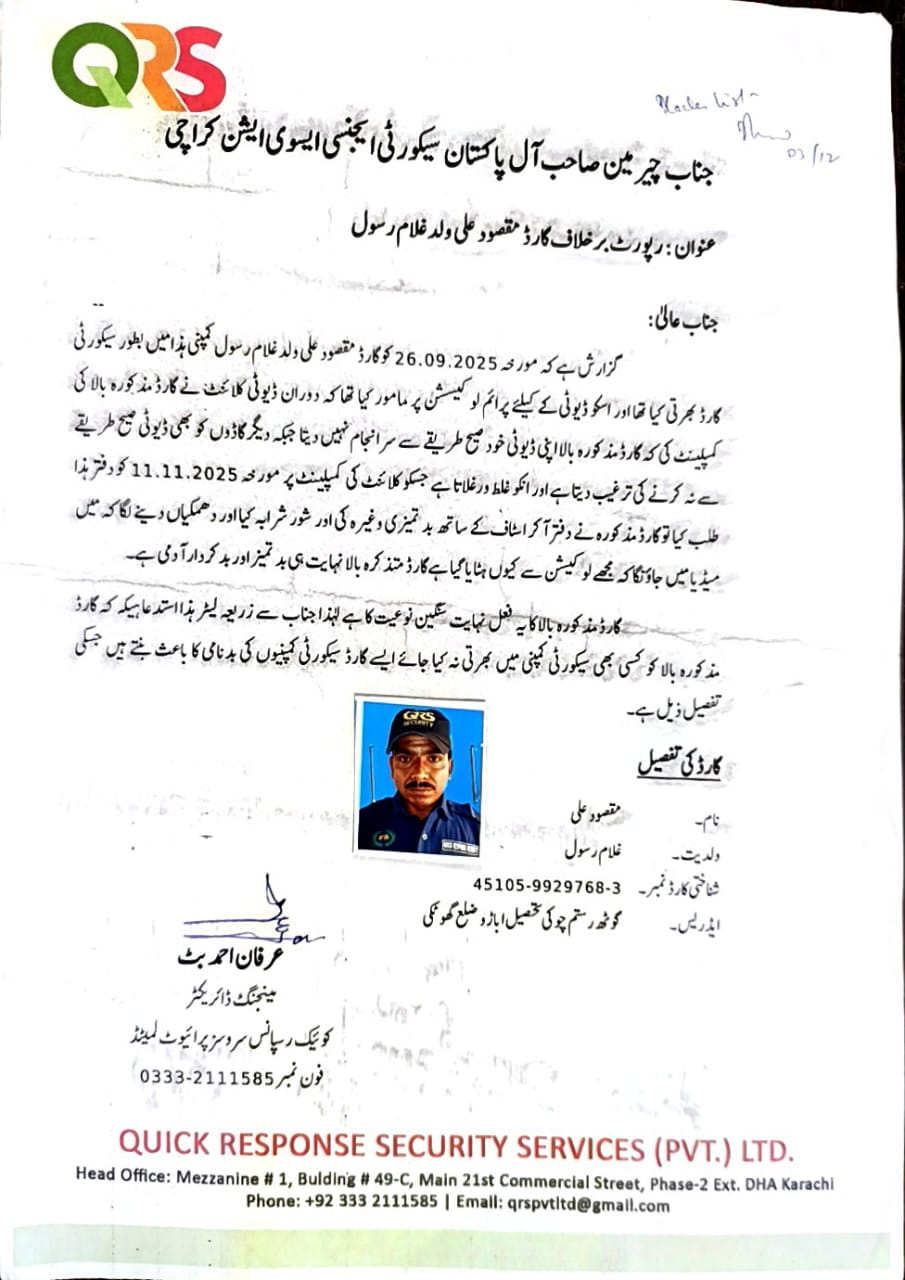 QRS
03/12
جناب چیرمین صاحب آل پاکستان سیکورٹی ایجنسی ایسوی ایشن کراچی
عنوان: رپورٹ برخلاف گارڈ مقصود علی ولد غلام رسول
جناب عالیٰ:
گزارش ہے کہ مورخہ 26.09.2025 کو گارڈ مقصود علی ولد غلام رسول کمپنی ہذا میں بطور سیکورٹی
گارڈ بھرتی کیا تھا اور اسکو ڈیوٹی کے کیلئے پرائم لوکیشن پر مامور کیا تھا کہ دوران ڈیوٹی کلائنٹ نے گارڈ مذکورہ بالا کی
کمپلینٹ کی کہ گارڈ مذکورہ بالا اپنی ڈیوٹی خود صیح طریقے سے سرانجام نہیں دیتا جبکہ دیگر گاڈوں کو بھی ڈیوٹی صیح طریقے
سے نہ کرنے کی ترغیب دیتا ہے اور انکو غلط ورغلاتا ہے جسکو کلائنٹ کی کمپلینٹ پر مورخہ 11.11.2025 کو دفتر ہذا
طلب کیا تو گارڈ مذکورہ نے دفتر آکر اسٹاف کے ساتھ بدتمیزی وغیرہ کی اور شور شرابہ کیا اور دھمکیاں دینے لگا کہ میں
میڈیا میں جاؤنگا کہ مجھے لوکیشن سے کیوں ہٹایا گیا ہے گارڈ متذکرہ بالا نہایت ہی بدتمیز اور بدکردار آدمی ہے۔
گارڈ مذکورہ بالا کا یہ فعل نہایت سنگین نوعیت کا ہے لہٰذا جناب سے زریعہ لیٹر ہذا استدعا ہیکہ کہ گارڈ
مذکورہ بالا کو کسی بھی سیکورٹی کمپنی میں بھرتی نہ کیا جائے ایسے گارڈ سیکورٹی کمپنیوں کی بدنامی کا باعث بنتے ہیں جسکی
تفصیل ذیل ہے۔
QRS
SECURITY
گارڈ کی تفصیل
نام۔ مقصود علی
ولدیت۔ غلام رسول
شناختی کارڈ نمبر۔ 45105-9929768-3
ایڈریس۔ گوٹھ رستم چوکی تحصیل اباڑو ضلع گھوٹکی
عرفان احمد بٹ
مینجنگ ڈائریکٹر
کوئیک رسپانس سروسز پرائیوٹ لمیٹڈ
فون نمبر 0333-2111585
QUICK RESPONSE SECURITY SERVICES (PVT.) LTD.
Head Office: Mezzanine # 1, Bulding # 49-C, Main 21st Commercial Street, Phase-2 Ext. DHA Karachi
Phone: +92 333 2111585 | Email: qrspvtltd@gmail.com